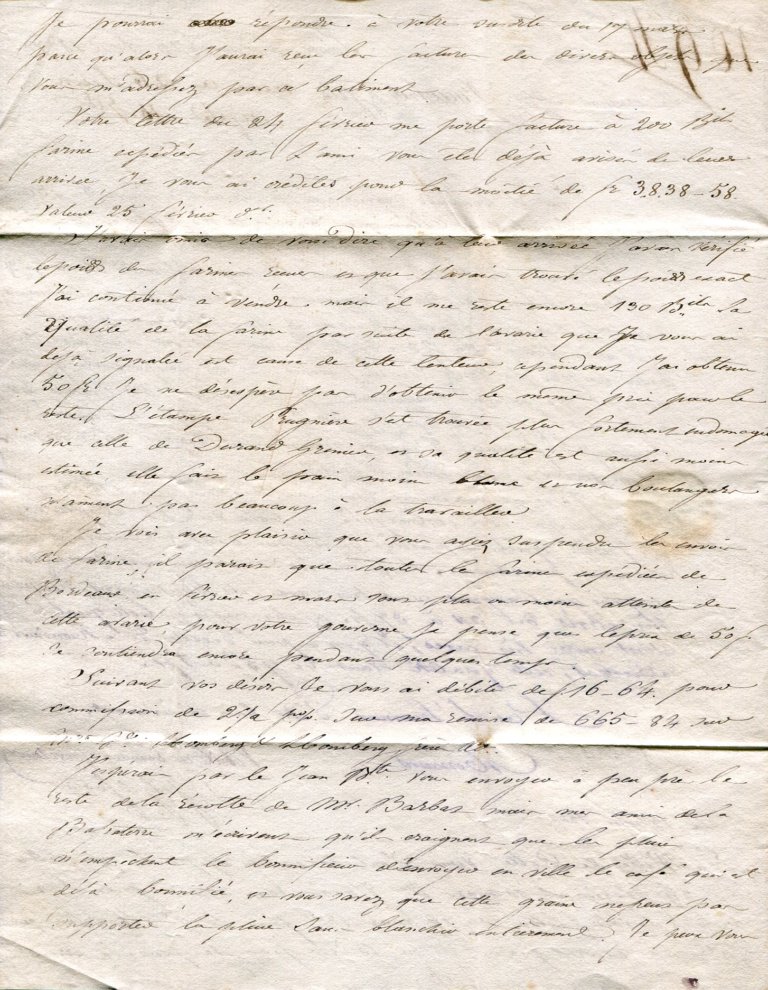 Je pourrai répondre à votre du 17 mars
parce qu'alors J'aurai reçu les factures des divers objets que
vous m'adressez par ce batiment
Votre lettre du 24 février me porte facture à 200 Bils
farine expédiés par L'ami vous etes déjà avisée de leur
arrivée, Je vous ai crédités pour la moitié de fr 3838-58
valeur 25 février
J'avais omis de vous dire qu'à leur arrivée J'avais vérifié
le poids des farines reçues et que j'avais trouvé le poids exact
J'ai continué à vendre, mais il me reste encore 130 Bils la
qualité de la farine par suite de l'avarie que Je vous ai
déjà signalée est cause de cette lenteur, cependant J'ai obtenu
50 fr Je ne désespère pas d'obtenir le même prix pour le
reste. L'étampe s'est trouvée plus fortement endomagée
que celle de Durand Grenier, et sa qualité est aussi moins
estimée elle fait le pain moins blanc et nos boulangers
n'aiment pas beaucoup à la travailler
Je vois avec plaisir que vous ayez suspendu les envois
de farine, il parait que toutes les farines expédiées de
Bordeaux en février et mars sont plus ou moins atteintes de
cette avarie pour votre gouverne je pense que le prix de 50 f
se soutiendra encore pendant quelques temps
Suivant vos désirs Je vous ai débités de f 16-64 pour
commission de 2½ p% sur ma remise de 665-84 sur
frère
J'espérais par le Jean Bte vous envoyer à peu près le
reste de la récolte de Mr. Barbas mais mes amis de la
m'écrivent qu'ils craignent que les pluies
n'empechent le bonnifieur d'envoyer en ville le café qui est
déjà bonnifié, et vous savez que cette graine ne peut pas
supporter la pluie sans blanchir entièrement. Je peux vous